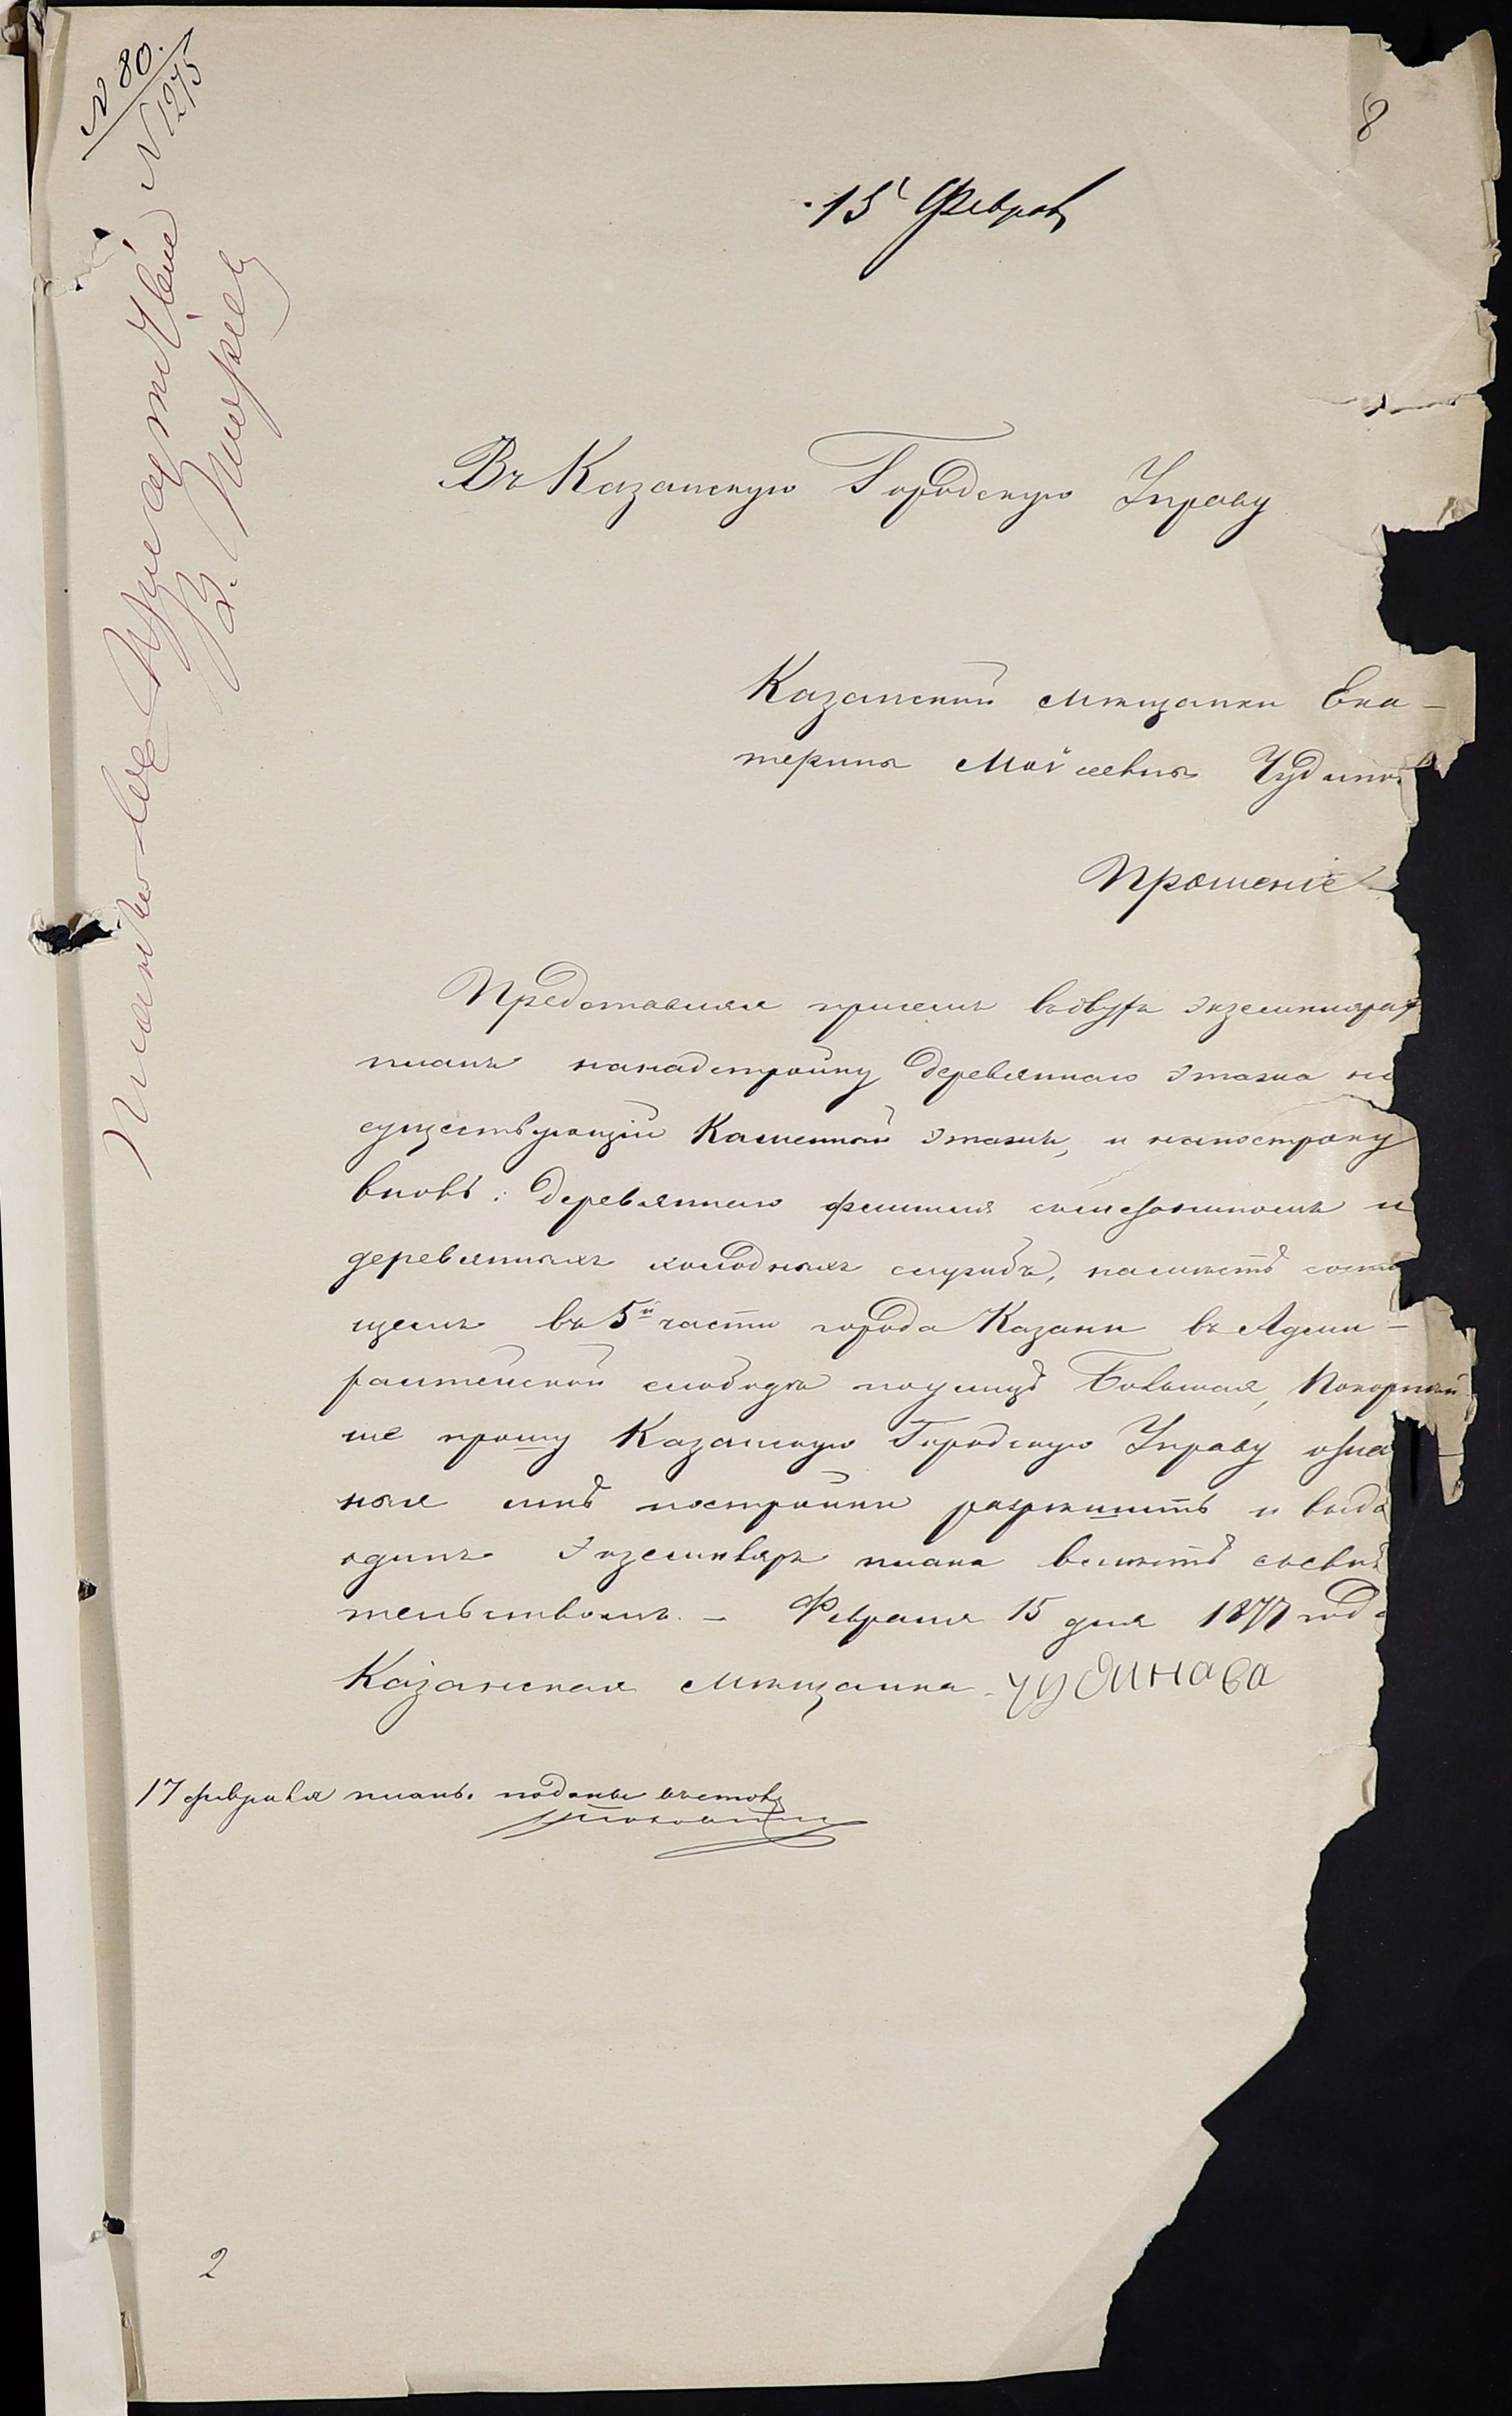 N 80.
N 1275
8
15 Феврал
Въ Казанскую Городскую Управу
Казанской мѣщанки Ека-
терины Моисеевны Чудино
Прошеніе
Представляя присемъ въ двухъ экземпляра
планъ на надстройку деревяннаго этажа на
существующій Каменный этажъ, и на постройку
вновь: деревяннаго флигеля съ мезониномъ и
деревянныхъ холодныхъ службъ, на мѣстѣ состо
щемъ въ 5й части города Казани въ Адми-
ралтейской слободѣ по улицѣ Большая, Покорнѣй
ше прошу Казанскую Городскую Управу озна
ныя мнѣ постройки разрѣшить и выда
одинъ Экземпляръ плана вмѣстѣ съ свид
тельствомъ. - Февраля 15 дня 1877 года
Казанская мѣщанка Чудинава
17 февраля планъ. поданы въ столъ
2